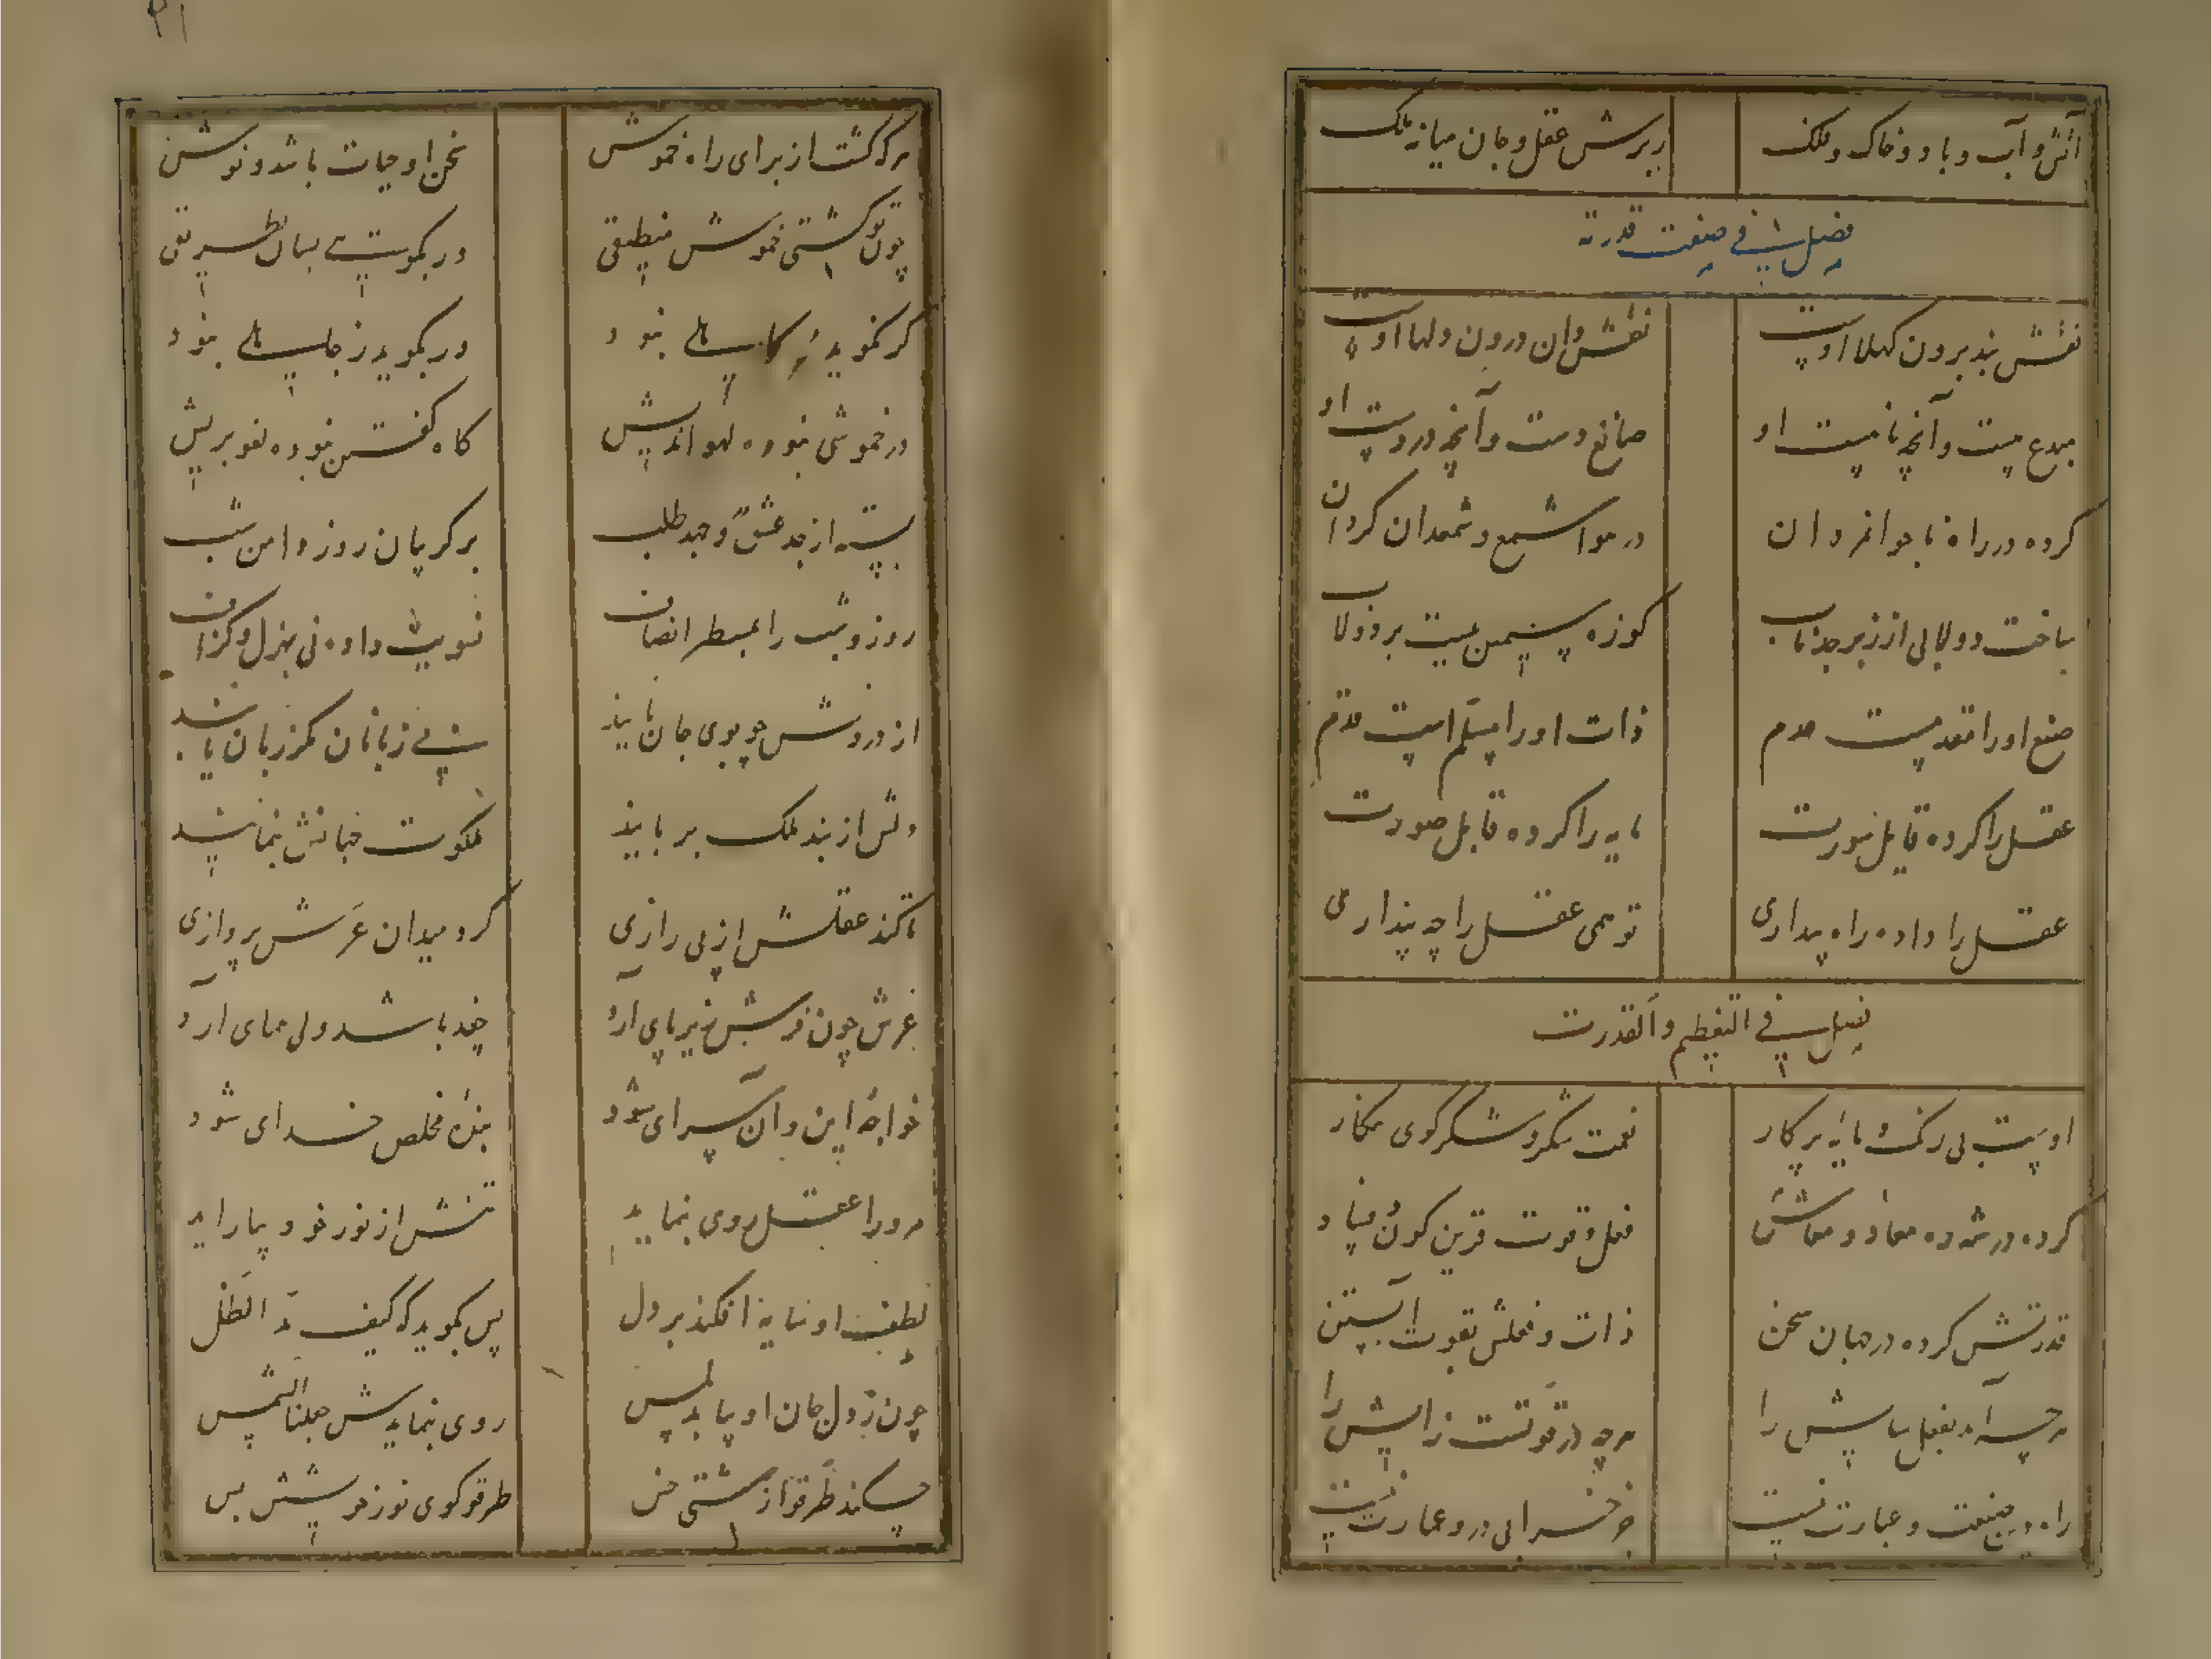 آتش و آب و باد و خاک و فلک
زبرش عقل و جان میانه ملک
فصل فی صنعت قدرته
نقش بند برون گلها اوست
نقش دان درون دلها اوست
مبدع هست و آنچه ناهست او
صانع دست و آنچه در دست او
کرده در راه ناجوانمردان
در هوا شمع و شمعدان گردان
ساخت دولابی از زبرجد ناب
کوزه سیمین ببست بر دولاب
صنع او را مقدمست عدم
ذات او را مسلم است قدم
عقل را کرده قابل سورت
مایه را کرده قابل صورت
عقل را داده راه بیداری
تو همی عقل را چه پنداری
فصل فی التعظیم والقدرت
اوست بی رنگ و مایه پرکار
نعمت شکر و شکرگوی نگار
کرده در شه ده معاد و معاش
فعل و قوت قرین کون و فساد
قدرتش کرده در جهان سخن
ذات و فعلش بقوت آبستن
هرچه آمد بفعل سابیش را
هرچه در قوتست زایش را
راه در صنعت و عبارت نیست
جز خرابی درو عمارت نیست
۳۱
هرکه گشت از برای راه خموش
سخن او حیات باشد و نوش
چون تو گشتی خموش منطیقی
ور بگویی بسان بطریقی
گر نگوید ز کاهلی نبود
ور بگوید ز جاهلی نبود
در خموشی نبوده لهو اندیش
گاه گفتن نبوده لغو پریش
بسته از جد عشق و جهد طلب
بر گریبان روز دامن شب
روز و شب را بمسطر انصاف
نوبت داده نی بهزل و گزاف
از درونش چو بوی جان یابند
بی زبانان مگر زبان یابند
دلش از بند ملک برباید
ملکوت جهانش بنماید
تا کند عقلش از پی رازی
گرد میدان عرش پروازی
عرش چون فرش زیر پای آرد
چغد باشد ولی همای آرد
خواجه این و آن سرای شود
بنده مخلص خدای شود
مرورا عقل روی بنماید
تنش از نور خود بیاراید
لطف او سایه افکند بر دل
پس بگوید که کیف مد الظل
چون ز دل جان او بیابد لمس
روی بنمایدش جعلنا الشمس
چکند طرقوا ز مشتی خس
طرقوگوی نور خویشش بس